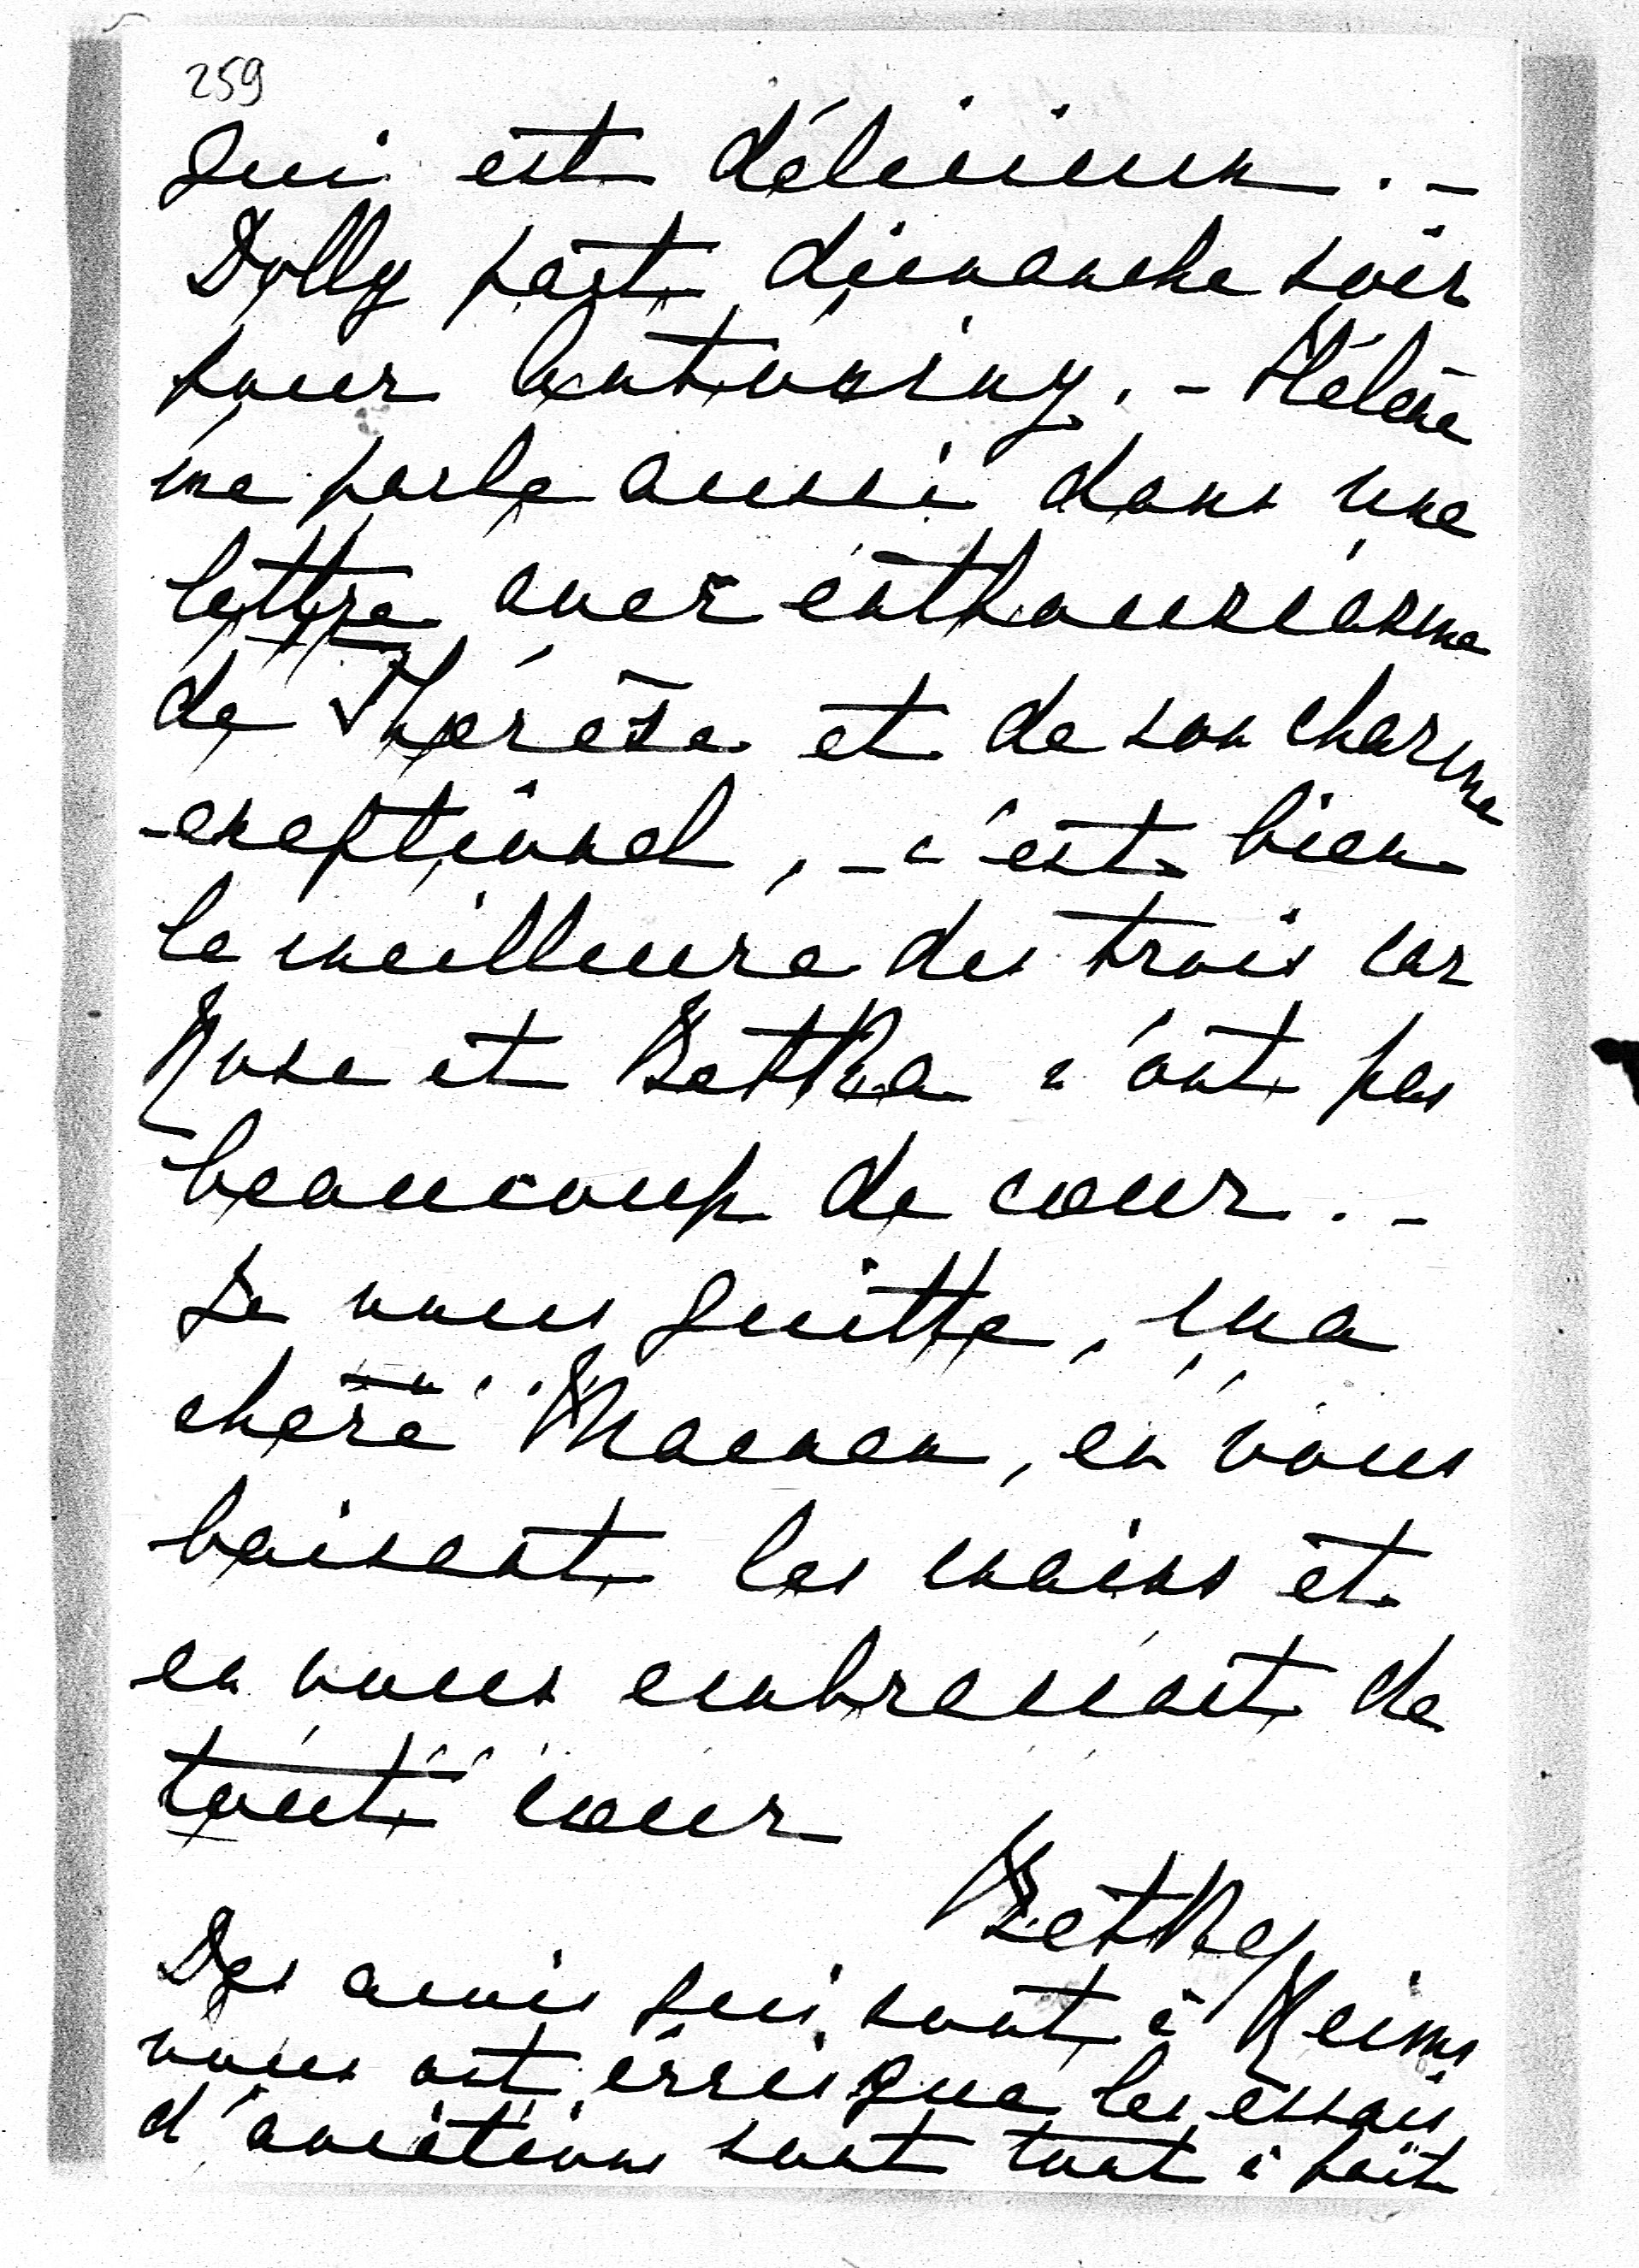 259
qui est délicieux. -
Dolly part dimanche soir
pour Lantosiny. - Hélène
me parle aussi dans une
lettre avec enthousiasme
de Thérèse et de son charme
exeptionnel, - c'est bien
la meilleure des trois car
Rose et Bettka n'ont pas
beaucoup de cœur. -
Je vous quitte, ma
chère Maman, en vous
baisant les mains et
en vous embrassant de
tout cœur
Bettky
Des amis qui sont à Reims
nous ont écris que les essais
d'aviations sont tout à fait